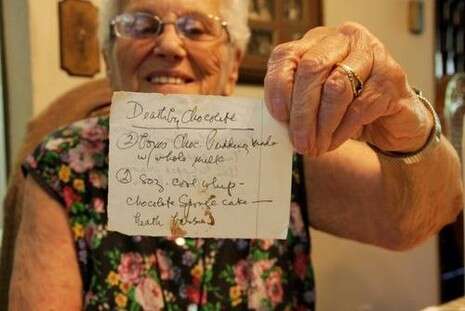 Death by Chocolate
② Boxes Choc Pudding made
w/ whole milk
① 8 oz. cool whip -
chocolate Sponge cake —
heath